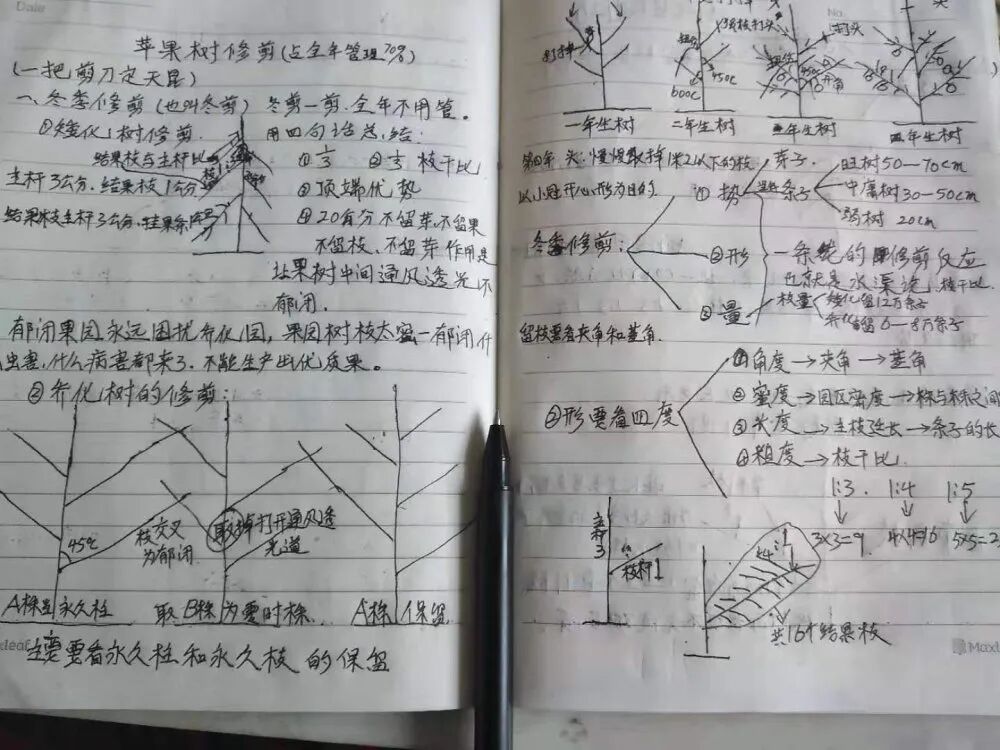 Date
苹果树修剪(占全年管理70%)
(一把剪刀定天昆)
一、冬季修剪(也叫冬剪) 冬剪一剪.全年不用管。
①矮化树修剪. 用四句话总结:
结果枝与主杆比 ①1/3 ②1/3 枝干比
主杆3公分.结果枝1公分 ③顶端优势
结果枝主杆3公分. ④20公分不留芽.不留果
不留枝、不留芽作用是
让果树中间通风透光不
郁闭.
郁闭果园永远困扰乔化园,果园树枝太密一郁闭什
虫害,什么病害都来了.不能生产出优质果。
②乔化树的修剪:
45℃
枝交叉
为郁闭
取掉打开通风透
光道
A株 永久柱 取B株为 时株 A株保留
主要看永久柱和永久枝的保留
No.
打头
45℃
60℃
一年生树 二年生树 三年生树 四年生树
第四年 头:慢慢取掉1米2以下的枝
以小冠开心形为目的.
冬季修剪:
①势
条子
旺树50—70cm
中庸树30—50cm
弱树 20cm
②形
一条线的 修剪反应
也就是水渠论,枝干比.
③量
枝量 矮化留12万条子
乔化留6—8万条子
留枝要看夹角和基角.
②形要看四度
①角度→夹角→基角
②密度→园区密度→株与株之间
③长度→主枝延长→条子的长
④粗度→枝干比.
1:3. 1:4 1:5
3×3=9. 4×4=16 5×5=2
主杆3
枝杆1
共16个结果枝